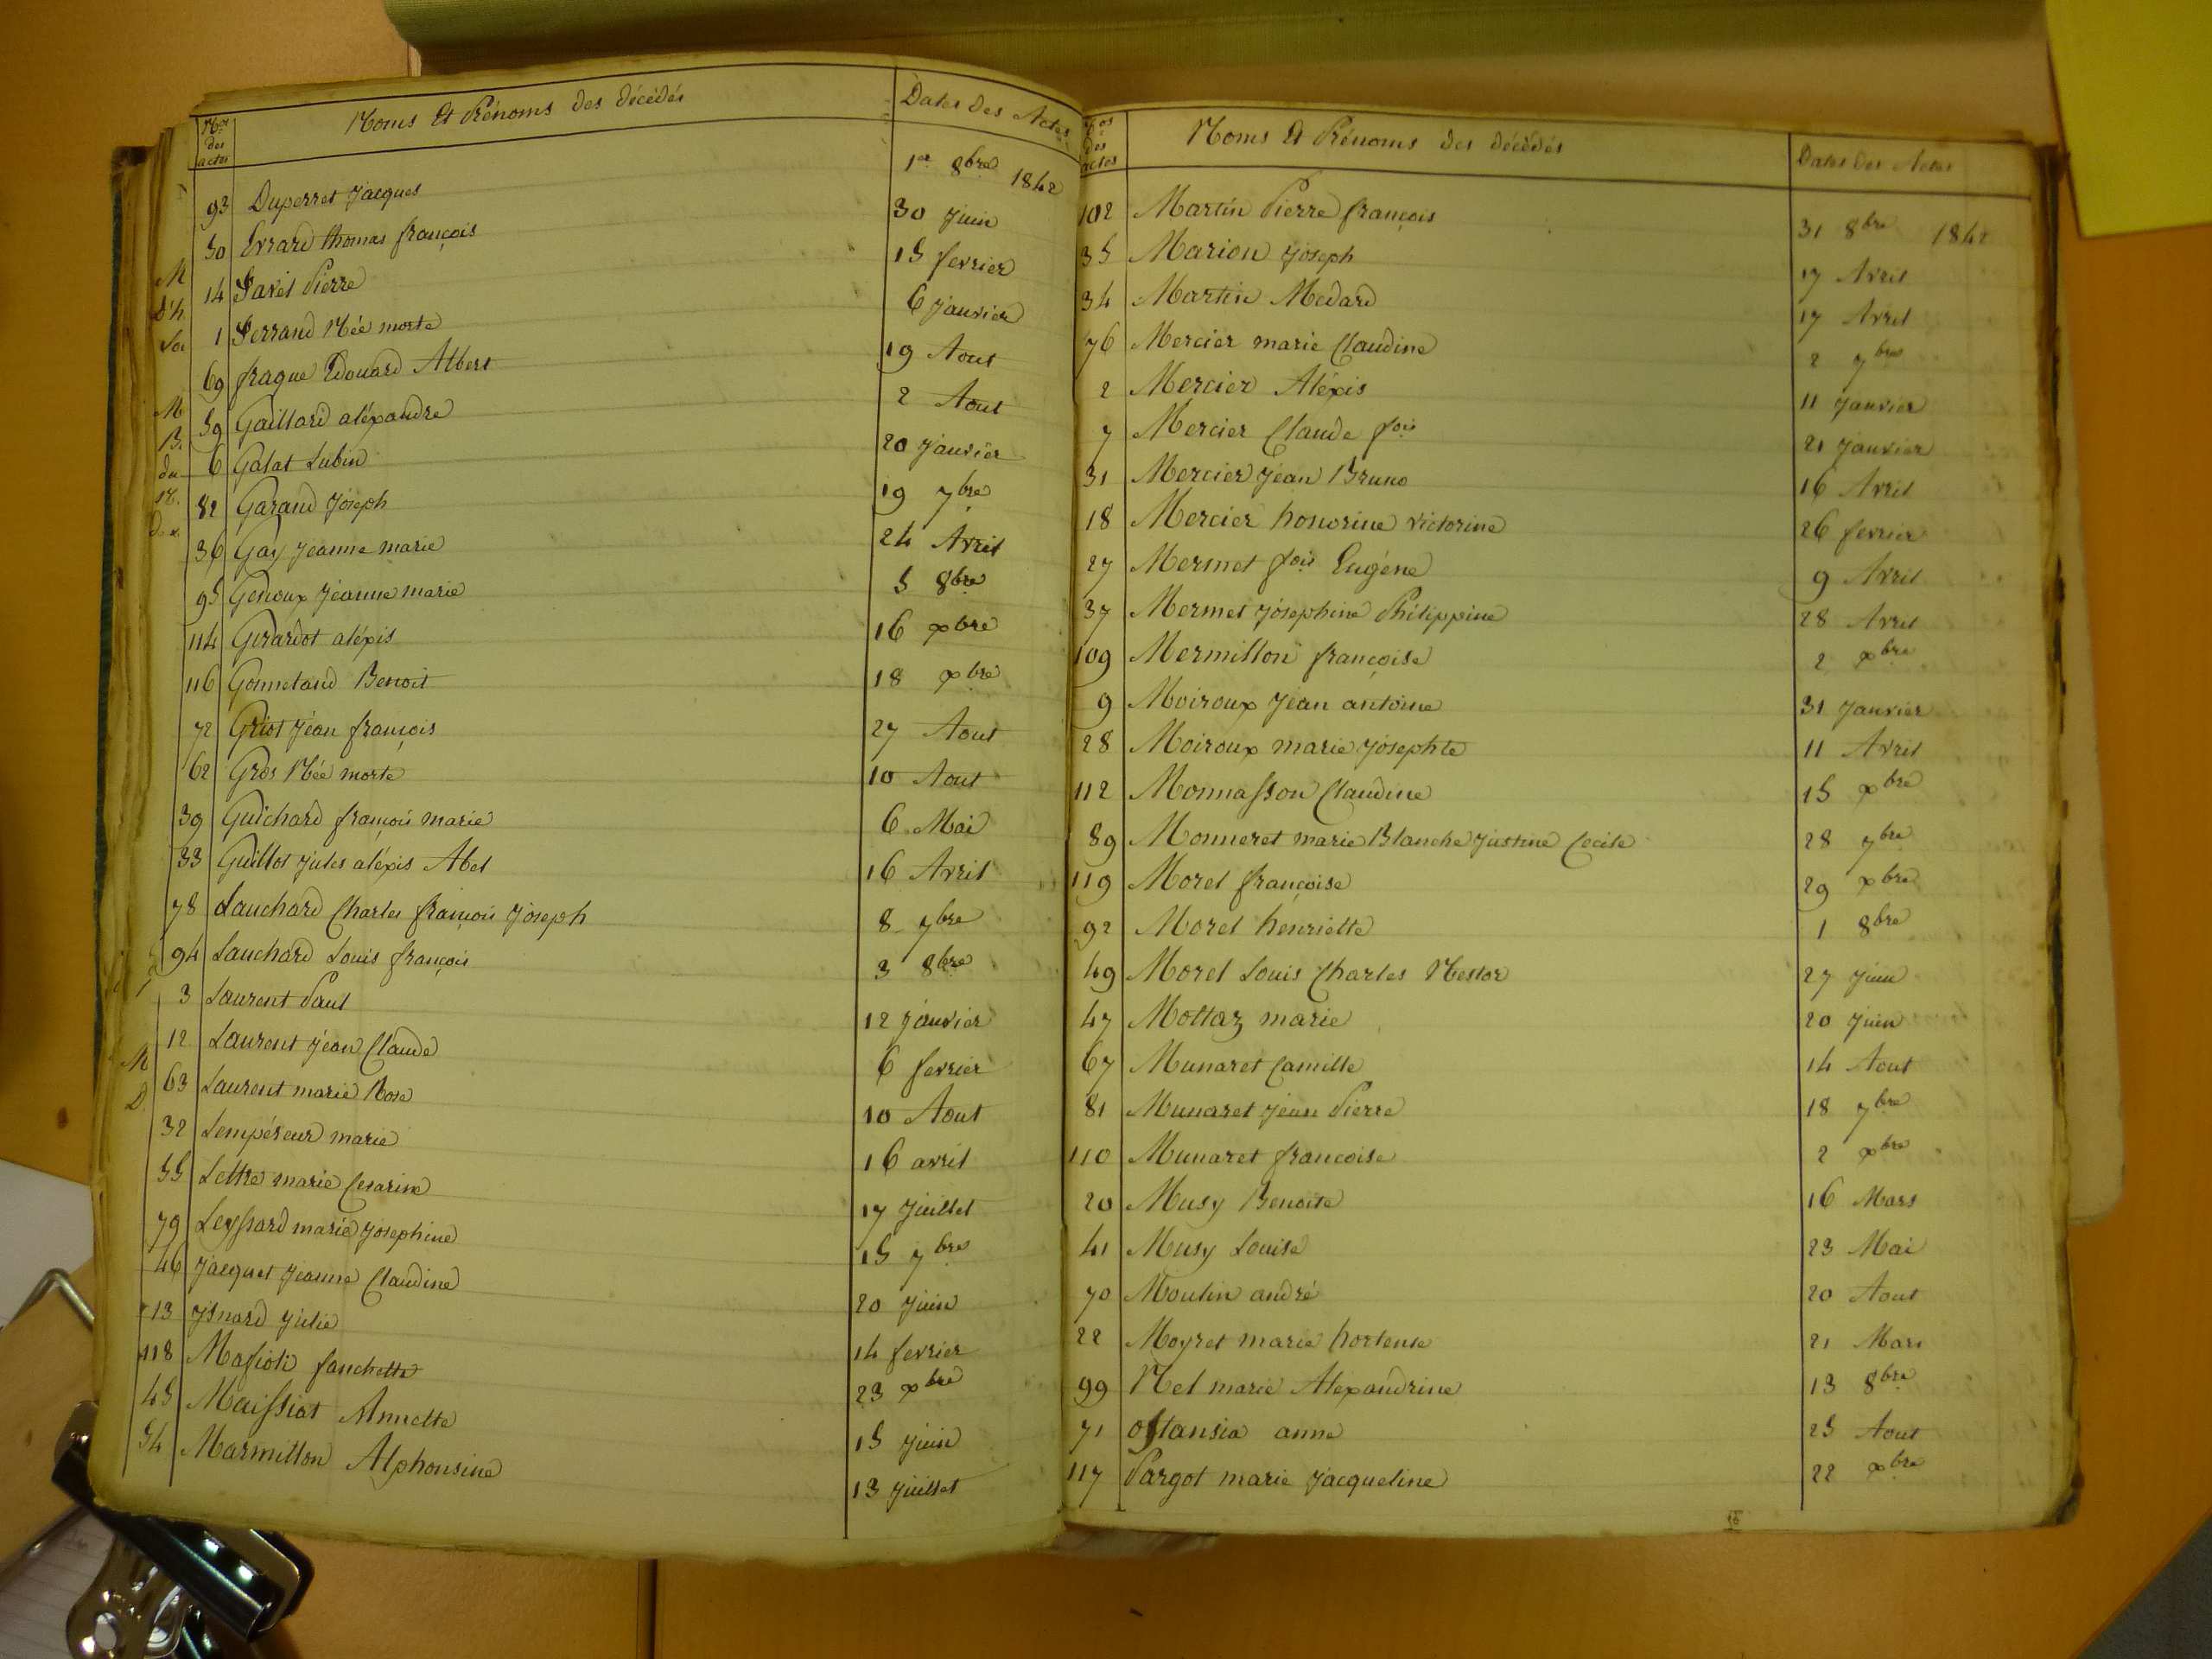 Nos des actes Noms Et Prénoms des décédés Dates Des Actes
93 Duperret Jacques 1er 8bre 1842
50 Errard thomas françois 30 Juin
14 Favet Pierre 15 fevrier
1 Ferrand Née morte 6 Janvier
69 frague Edouard Albert 19 Aout
59 Gaillard aléxandre 2 Aout
6 Galat Lubin 20 Janvier
82 Garand Joseph 19 7bre
36 Gay Jeanne marie 24 Avril
95 Genoux Jeanne marie 5 8bre
114 Girardot aléxis 16 xbre
116 Gonnetand Benoit 18 xbre
72 Griot Jean françois 27 Aout
62 Gros Née morte 10 Aout
39 Guichard françois marie 6 Mai
33 Guillot Jules aléxis Abel 16 Avril
78 Lauchard Charles françois Joseph 8 7bre
94 Lauchard Louis françois 3 8bre
3 Laurent Paul 12 Janvier
12 Laurent Jean Claude 6 fevrier
63 Laurent marie Rose 10 Aout
32 Lempéreur marie 16 avril
55 Lettre marie Cesarine 17 Juillet
79 Leyssard marie Josephine 15 7bre
46 Jacquet Jeanne Claudine 20 Juin
13 Jsnard Julie 14 fevrier
118 Mafioli fanchette 23 xbre
45 Maissiat Annette 15 Juin
54 Marmillon Alphonsine 13 Juillet
Nos des actes Noms Et Prénoms des décédés Dates des Actes
102 Martin Pierre françois 31 8bre 1842
35 Marion Joseph 17 Avril
34 Martin Medard 17 Avril
76 Mercier marie Claudine 2 7bre
2 Mercier Aléxis 11 Janvier
7 Mercier Claude fois 21 Janvier
31 Mercier Jean Bruno 16 Avril
18 Mercier honorine victorine 26 fevrier
27 Mermet fois Eugéne 9 Avril
37 Mermet Josephine Philippine 28 Avril
109 Mermillon françoise 2 xbre
9 Moiroux Jean antoine 31 Janvier
28 Moiroux marie Josephte 11 Avril
112 Monnasson Claudine 15 xbre
89 Monneret marie Blanche Justine Cecile 28 7bre
119 Morel françoise 29 xbre
92 Morel henriette 1 8bre
49 Morel Louis Charles Nestor 27 Juin
47 Mottaz marie 20 Juin
67 Munaret Camille 14 Aout
81 Munaret Jean Pierre 18 7bre
110 Munaret francoise 2 xbre
20 Musy Benoite 16 Mars
41 Musy Louise 23 Mai
70 Moulin andré 20 Aout
22 Moyret marie hortense 21 Mars
99 Nel marie Alexandrine 13 8bre
71 ostansia anne 25 Aout
117 Pargot marie Jacqueline 22 xbre